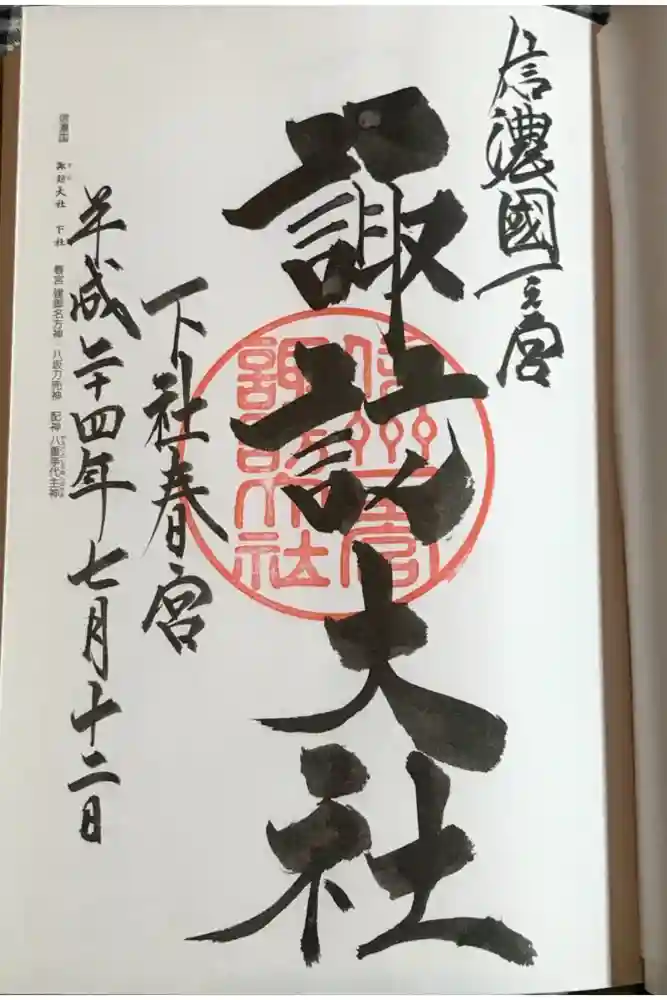 信濃國一之宮
諏訪大社
信州一宮
諏訪大社
下社春宮
平成二十四年七月十二日
信濃国 諏訪大社 下社 春宮 建御名方神 八坂刀売神 配神 八重事代主神